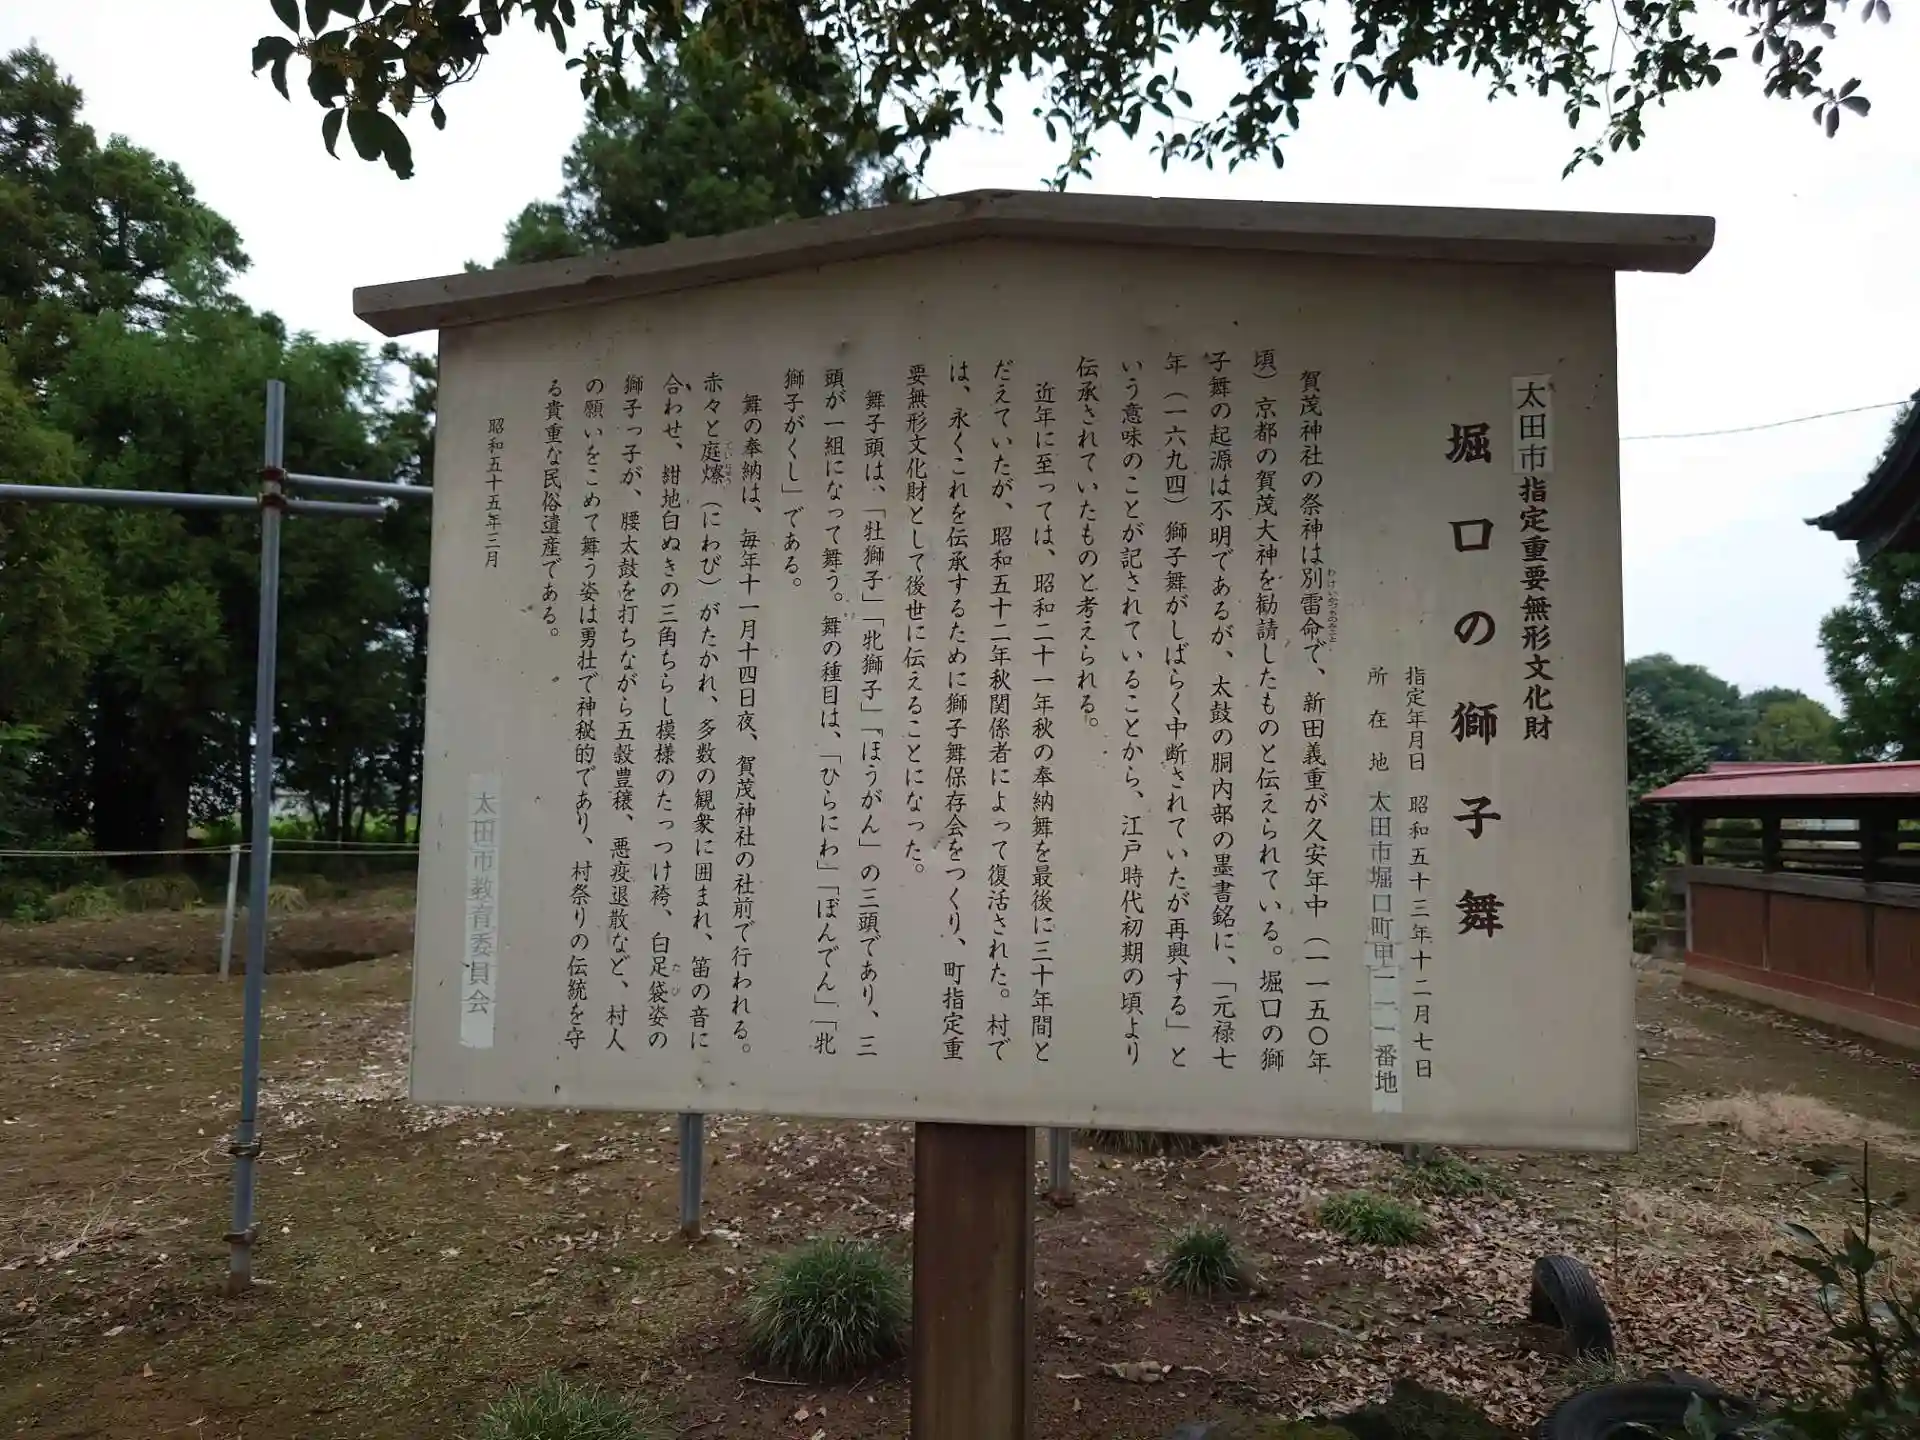 太田市指定重要無形文化財
堀口の獅子舞
指定年月日　昭和五十三年十二月七日
所在地　太田市堀口町甲一一一番地
賀茂神社の祭神は別雷命で、新田義重が久安年中（一一五〇年
頃）京都の賀茂大神を勧請したものと伝えられている。堀口の獅
子舞の起源は不明であるが、太鼓の胴内部の墨書銘に、「元禄七
年（一六九四）獅子舞がしばらく中断されていたが再興する」と
いう意味のことが記されていることから、江戸時代初期の頃より
伝承されていたものと考えられる。
近年に至っては、昭和二十一年秋の奉納舞を最後に三十年間と
だえていたが、昭和五十二年秋関係者によって復活された。村で
は、永くこれを伝承するために獅子舞保存会をつくり、町指定重
要無形文化財として後世に伝えることになった。
舞子頭は、「牡獅子」「牝獅子」「ほうがん」の三頭であり、三
頭が一組になって舞う。舞の種目は、「ひらにわ」「ぼんでん」「牝
獅子がくし」である。
舞の奉納は、毎年十一月十四日夜、賀茂神社の社前で行われる。
赤々と庭燎（にわび）がたかれ、多数の観衆に囲まれ、笛の音に
合わせ、紺地白ぬきの三角ちらし模様のたっつけ袴、白足袋姿の
獅子っ子が、腰太鼓を打ちながら五穀豊穣、悪疫退散など、村人
の願いをこめて舞う姿は勇壮で神秘的であり、村祭りの伝統を守
る貴重な民俗遺産である。
昭和五十五年三月
太田市教育委員会